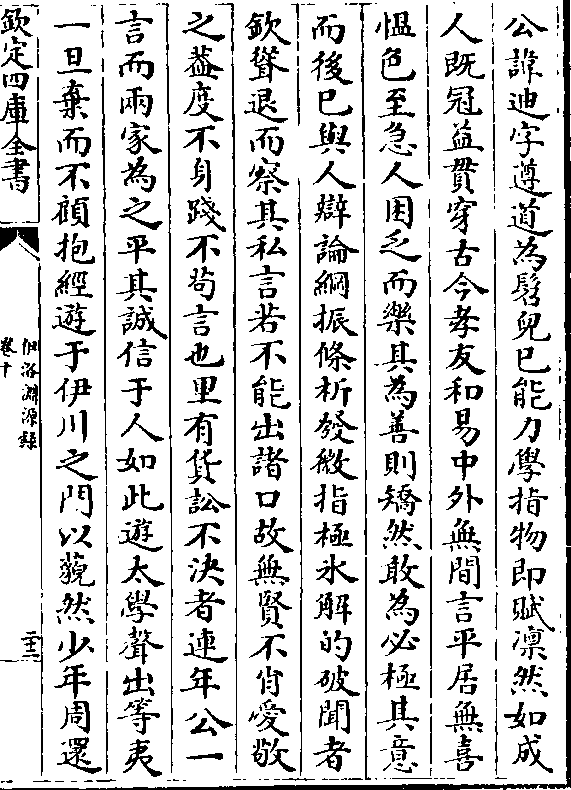 公諱迪字遵道為髫兒已能力學指物即賦凛然如成
人既冠益貫穿古今孝友和易中外無間言平居無喜
愠色至急人困乏而樂其為善則矯然敢為必極其意
而後已與人辯論綱振條析發微指極氷解的破聞者
欽聳退而察其私言若不能出諸口故無賢不肖愛敬
之葢度不身踐不茍言也里有貨訟不決者連年公一
言而兩家為之平其誠信于人如此遊太學聲出等夷
一旦棄而不顧抱經遊于伊川之門以藐然少年周還
欽定四庫全書
伊洛淵源錄
卷十
二十三